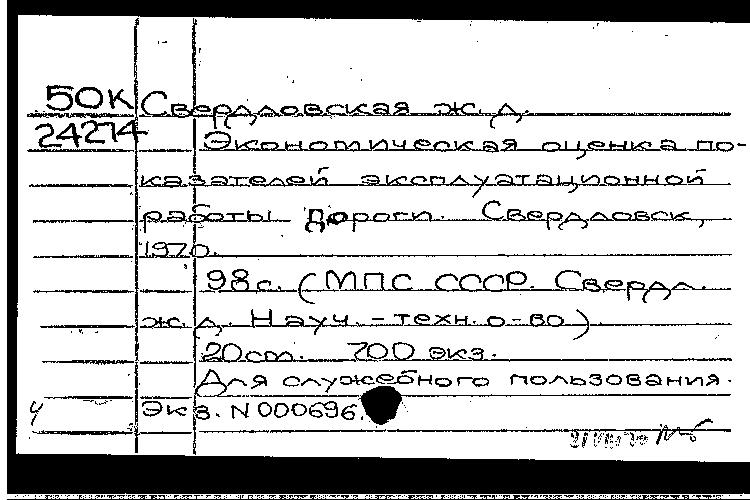 50К Свердловская ж.д.
24274 Экономическая оценка по-
казателей эксплуатационной
работы дороги. Свердловск,
1970.
98с. (МПС СССР. Свердл.
ж.д. Науч.-техн. о-во)
20см. 700 экз.
Для служебного пользования.
Экз. N 000696.